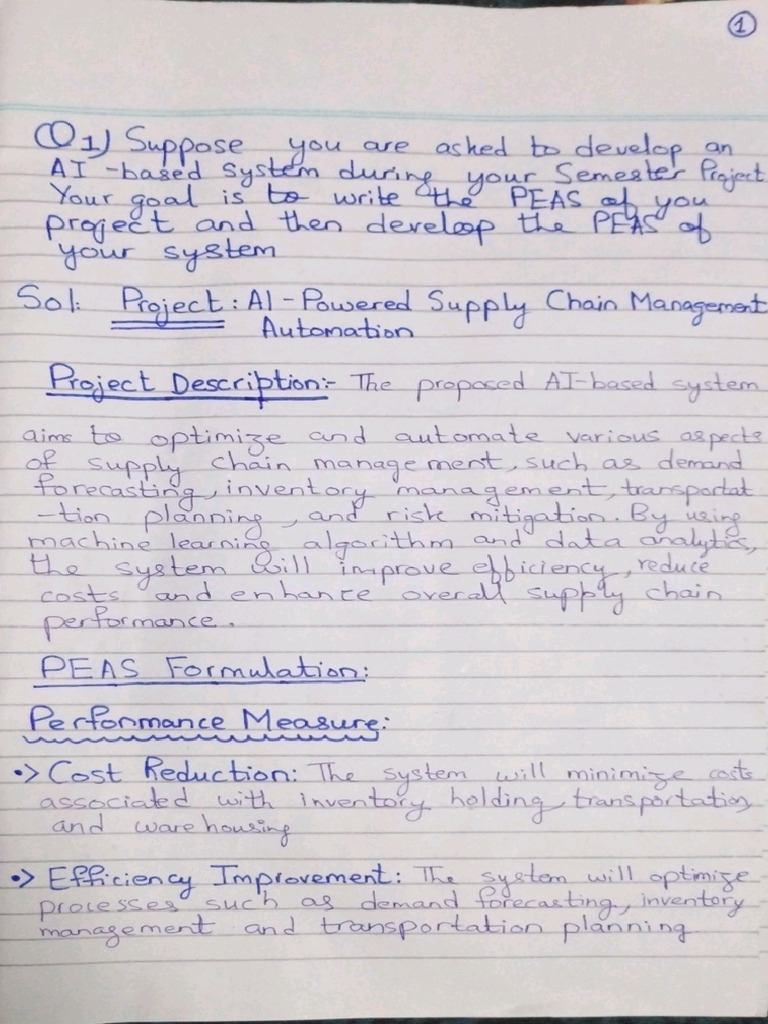 1
Q1) Suppose you are asked to develop an
AI-based system during your Semester Project
Your goal is to write the PEAS of you
project and then develop the PEAS of
your system
Sol: Project: AI-Powered Supply Chain Management
Automation
Project Description:- The proposed AI-based system
aims to optimize and automate various aspects
of supply chain management, such as demand
forecasting, inventory management, transportat
-tion planning, and risk mitigation. By using
machine learning algorithm and data analytics,
the system will improve efficiency, reduce
costs and enhance overall supply chain
performance.
PEAS Formulation:
Performance Measure:
•> Cost Reduction: The system will minimize costs
associated with inventory holding, transportation,
and warehousing
•> Efficiency Improvement: The system will optimize
processes such as demand forecasting, inventory
management and transportation planning